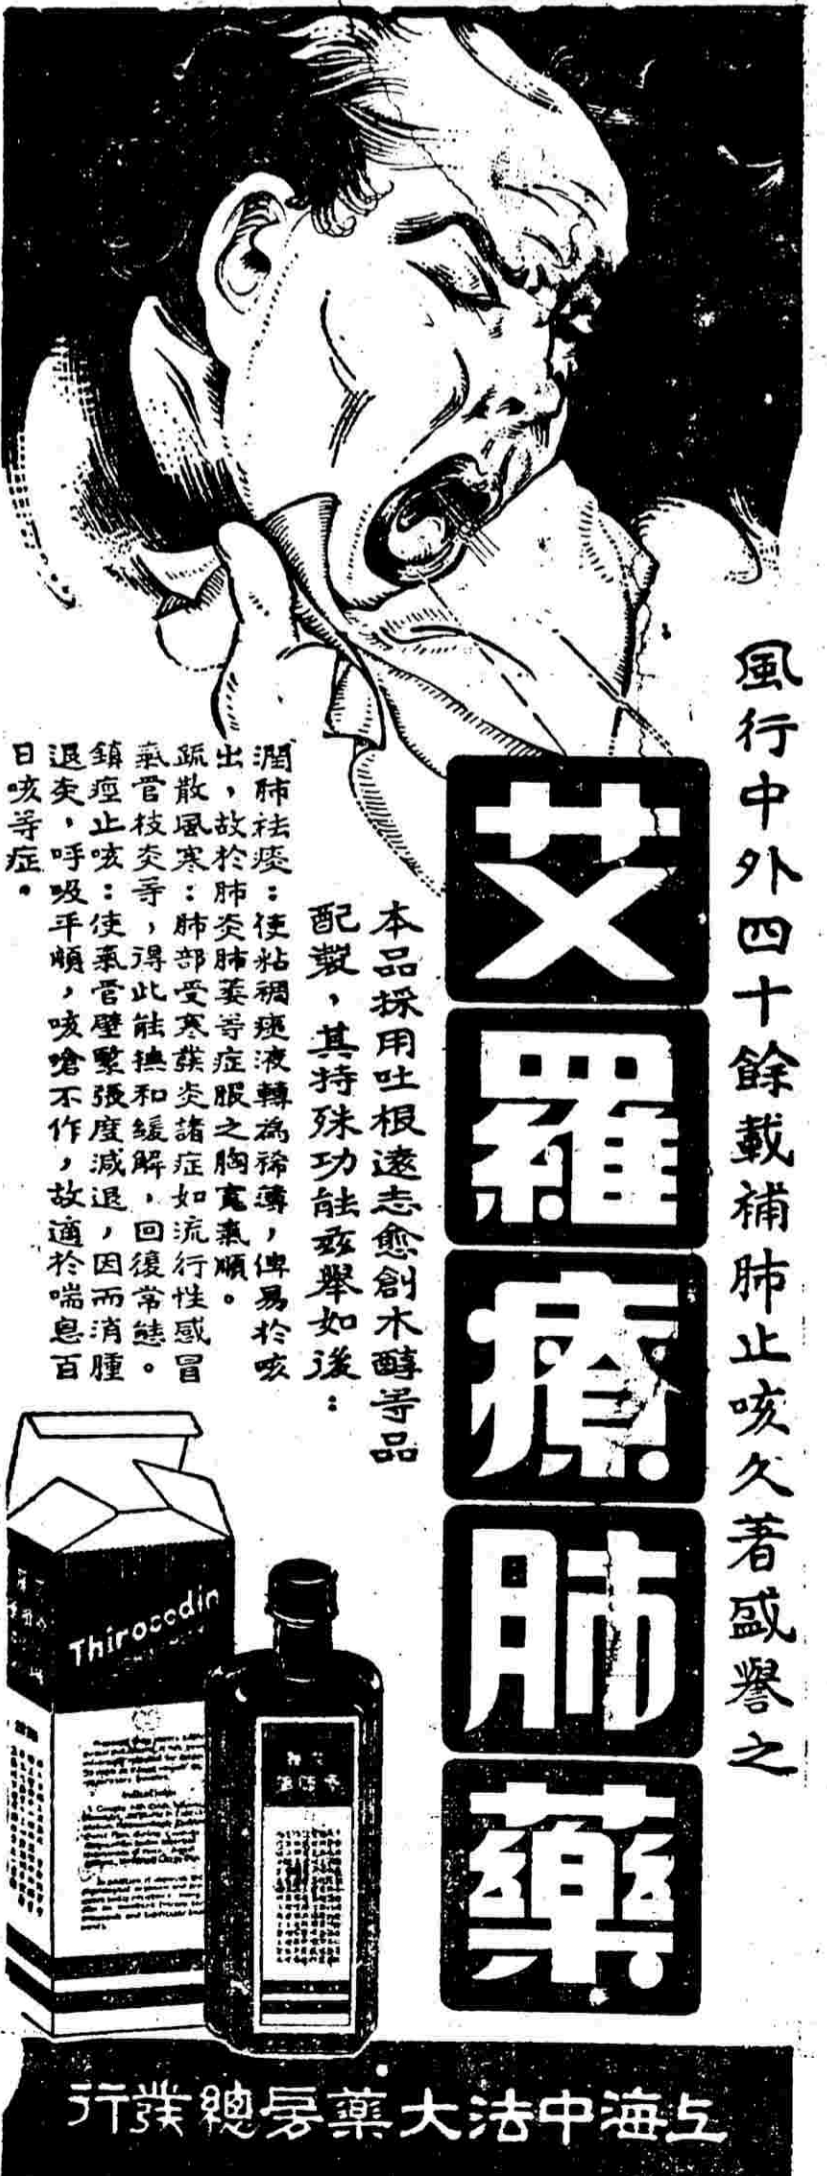 風行中外四十餘載補肺止咳久著盛譽之
艾羅療肺藥
本品採用吐根遠志愈創木醇等品
配製，其特殊功能玆舉如後：
潤肺祛痰：使粘稠痰液轉為稀薄，俾易於咳
出，故於肺炎肺萎等症服之胸寬氣順。
疏散風寒：肺部受寒發炎諸症如流行性感冒
氣管枝炎等，得此能撫和緩解，回復常態。
鎮痙止咳：使氣管壁緊張度減退，因而消腫
退炎，呼吸平順，咳嗆不作，故適於喘息百
日咳等症。
Thirocodin
上海中法大藥房總發行